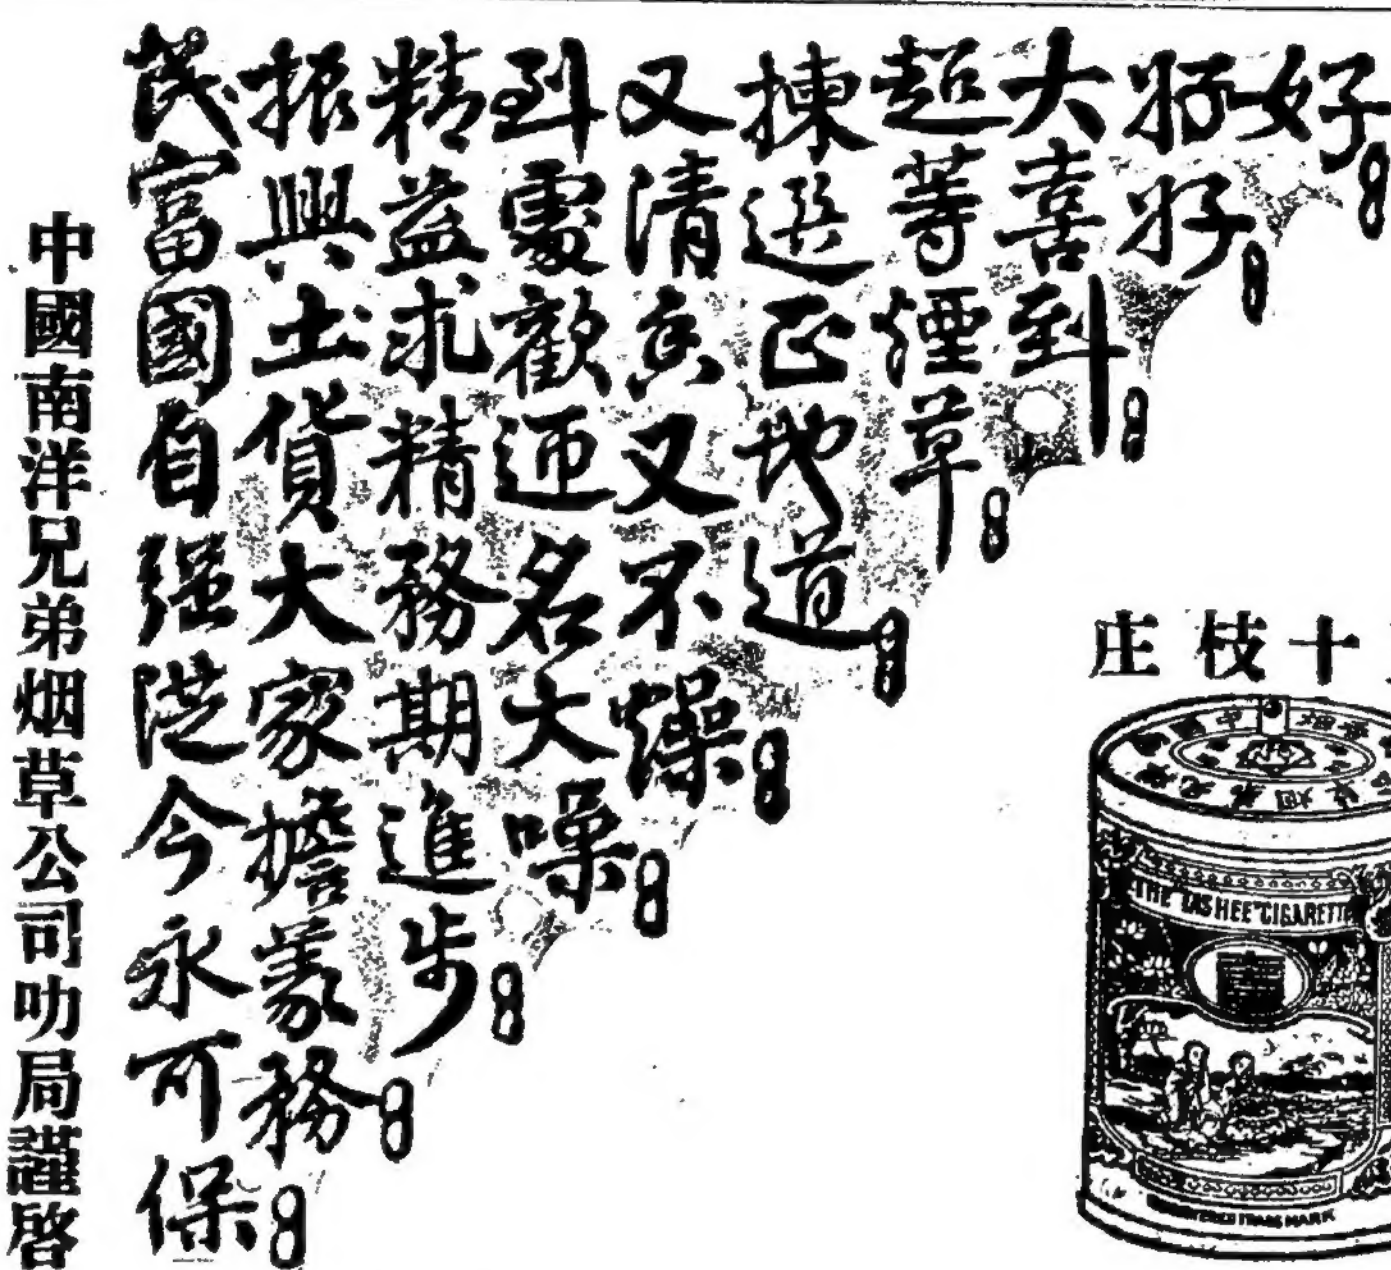 好
好好
大喜到
超等煙草
揀選正地道
又清香又不燥
到處歡迎名大噪
精益求精務期進步
振興土貨大家擔義務
民富國自强從今永可保
中國南洋兄弟烟草公司叻局謹啓
十枝庄
THE "TASHEE" CIGARETTE
TRADE MARK